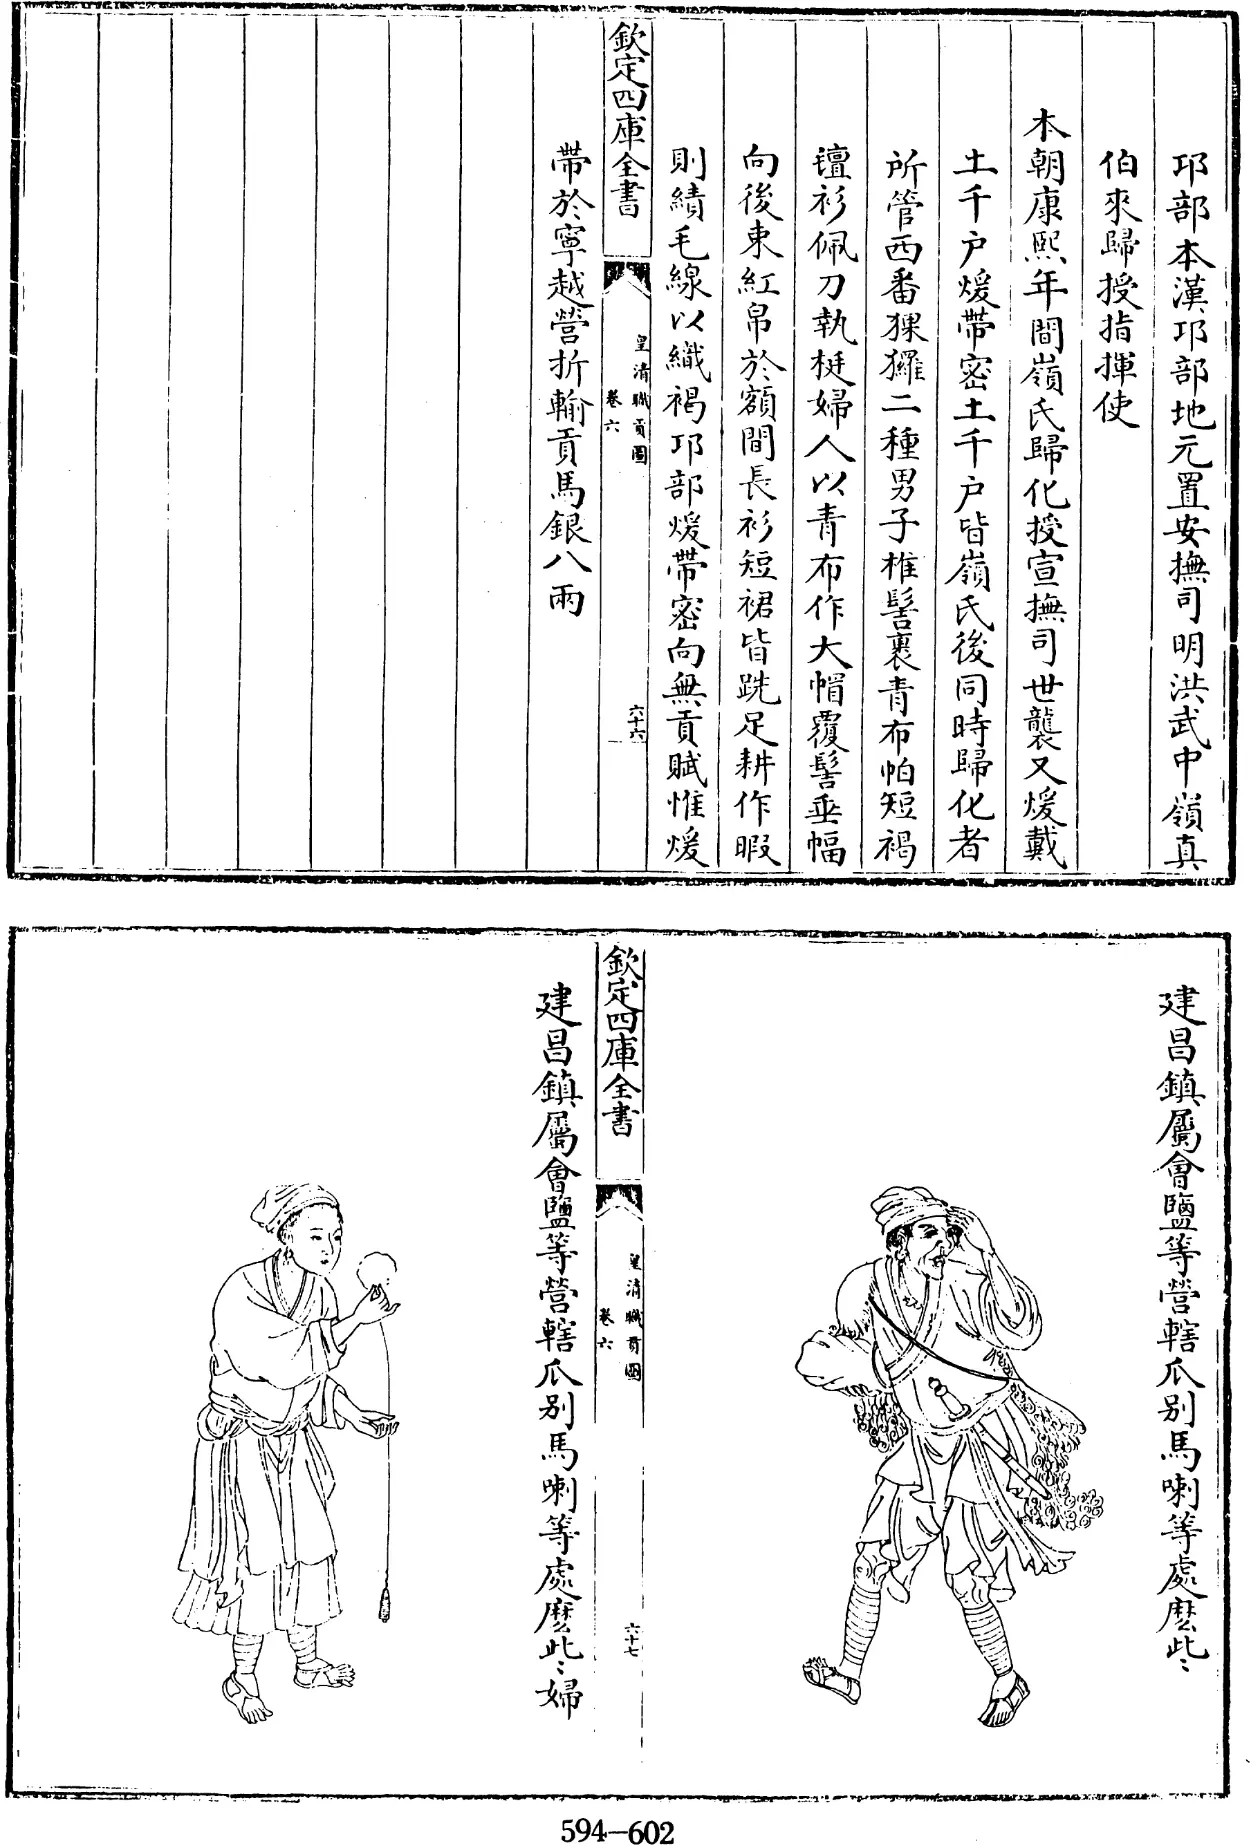 邛部本漢邛部地元置安撫司明洪武中嶺真
伯來歸授指揮使
本朝康熙年間嶺氏歸化授宣撫司世襲又煖戴
土千户煖帶密土千户皆嶺氏後同時歸化者
所管西番猓玀二種男子椎髻裹青布帕短褐
氊衫佩刀執梃婦人以青布作大帽覆髻垂幅
向後束紅帛於額間長衫短裙皆跣足耕作暇
則績毛線以織褐邛部煖帶密向無貢賦惟煖
欽定四庫全書
皇清職貢圖
卷六
六十六
帶於寧越營折輸貢馬銀八兩
建昌鎮屬會鹽等營轄瓜别馬喇等處麽些〻
欽定四庫全書
皇清職貢圖
卷六
六十七
建昌鎮屬會鹽等營轄瓜别馬喇等處麽些〻婦
594-602